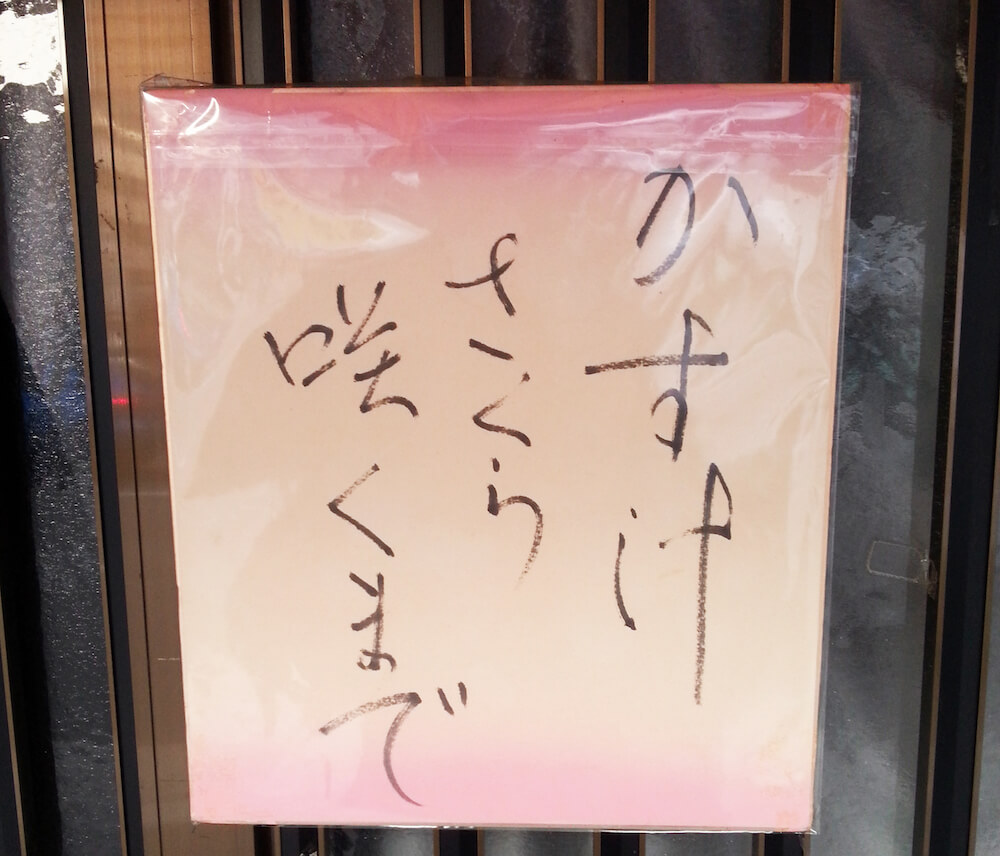 かす汁
さくら
咲くまで